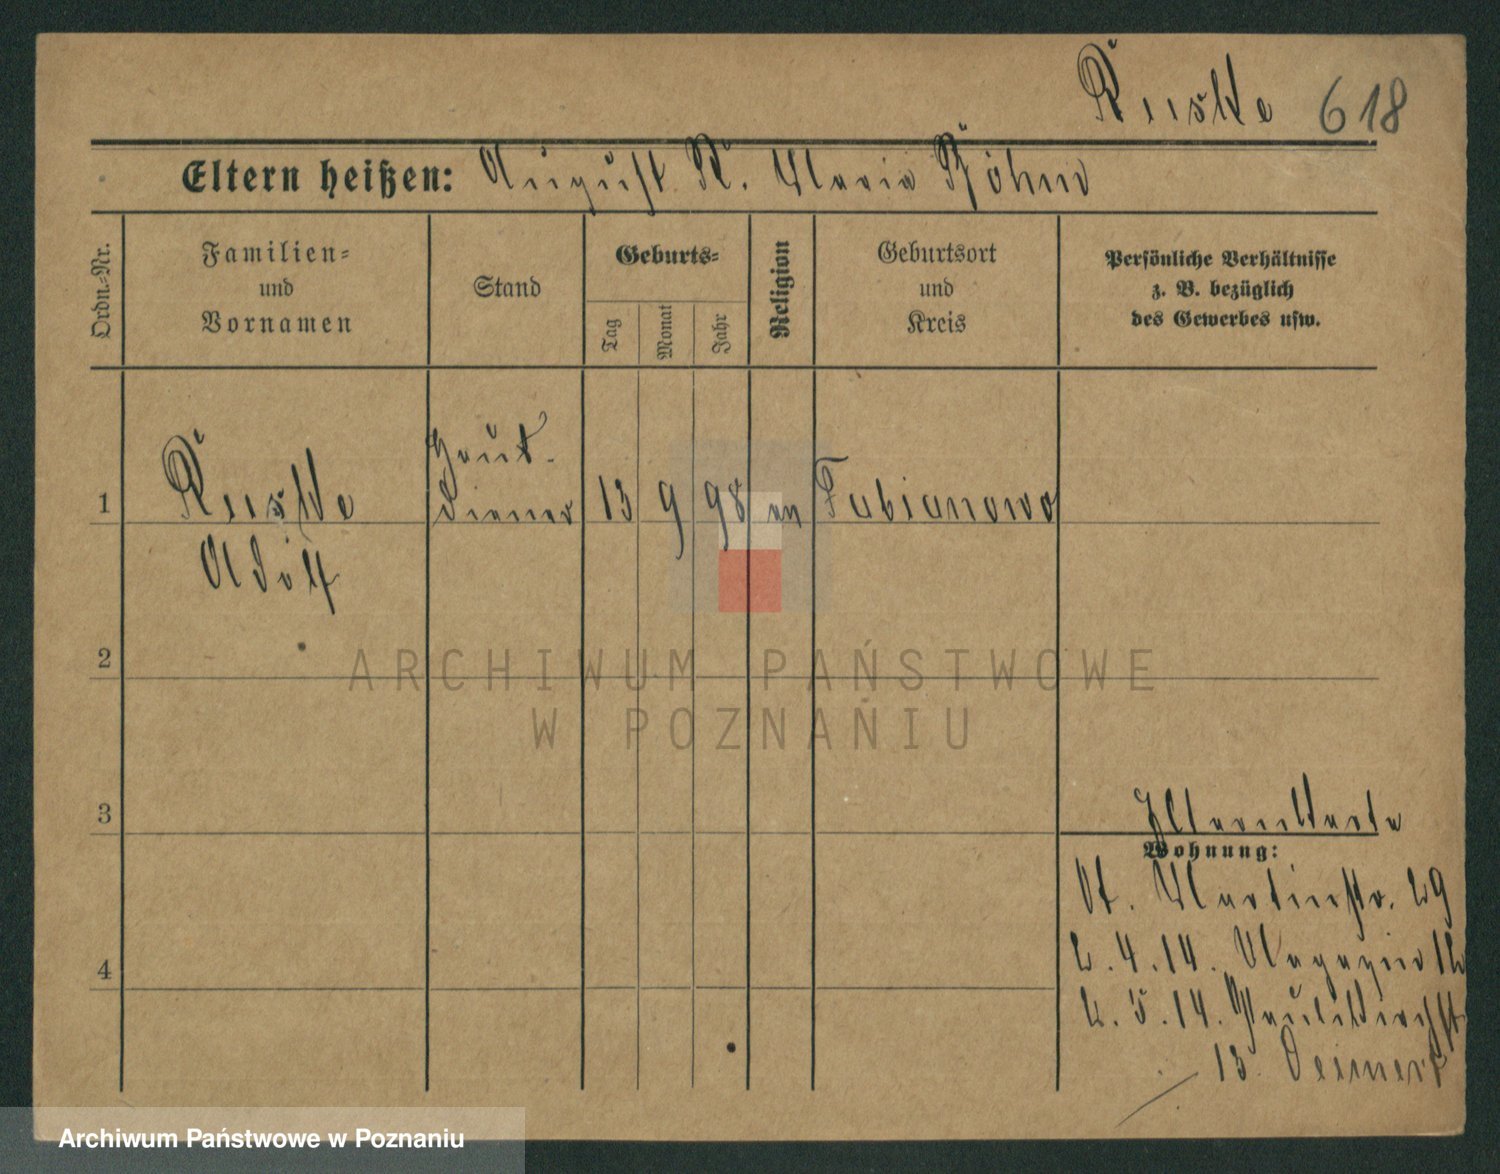 Kuske 618
Eltern heißen: August K. Maria Böhm
Ordn.-Nr.
Familien-
und
Vornamen
Stand
Geburts-
Tag
Monat
Jahr
Religion
Geburtsort
und
Kreis
Persönliche Verhältnisse
z. B. bezüglich
des Gewerbes usw.
Haus-
1 diener 13 9 98 ev Fabianowo
Adolf
2
3
Wohnung:
St. Martinstr. 29
4
2.4.14. Magazin
2.5.14. Paulikirchstr
13
ARCHIWUM PAŃSTWOWE
W POZNANIU
Archiwum Państwowe w Poznaniu